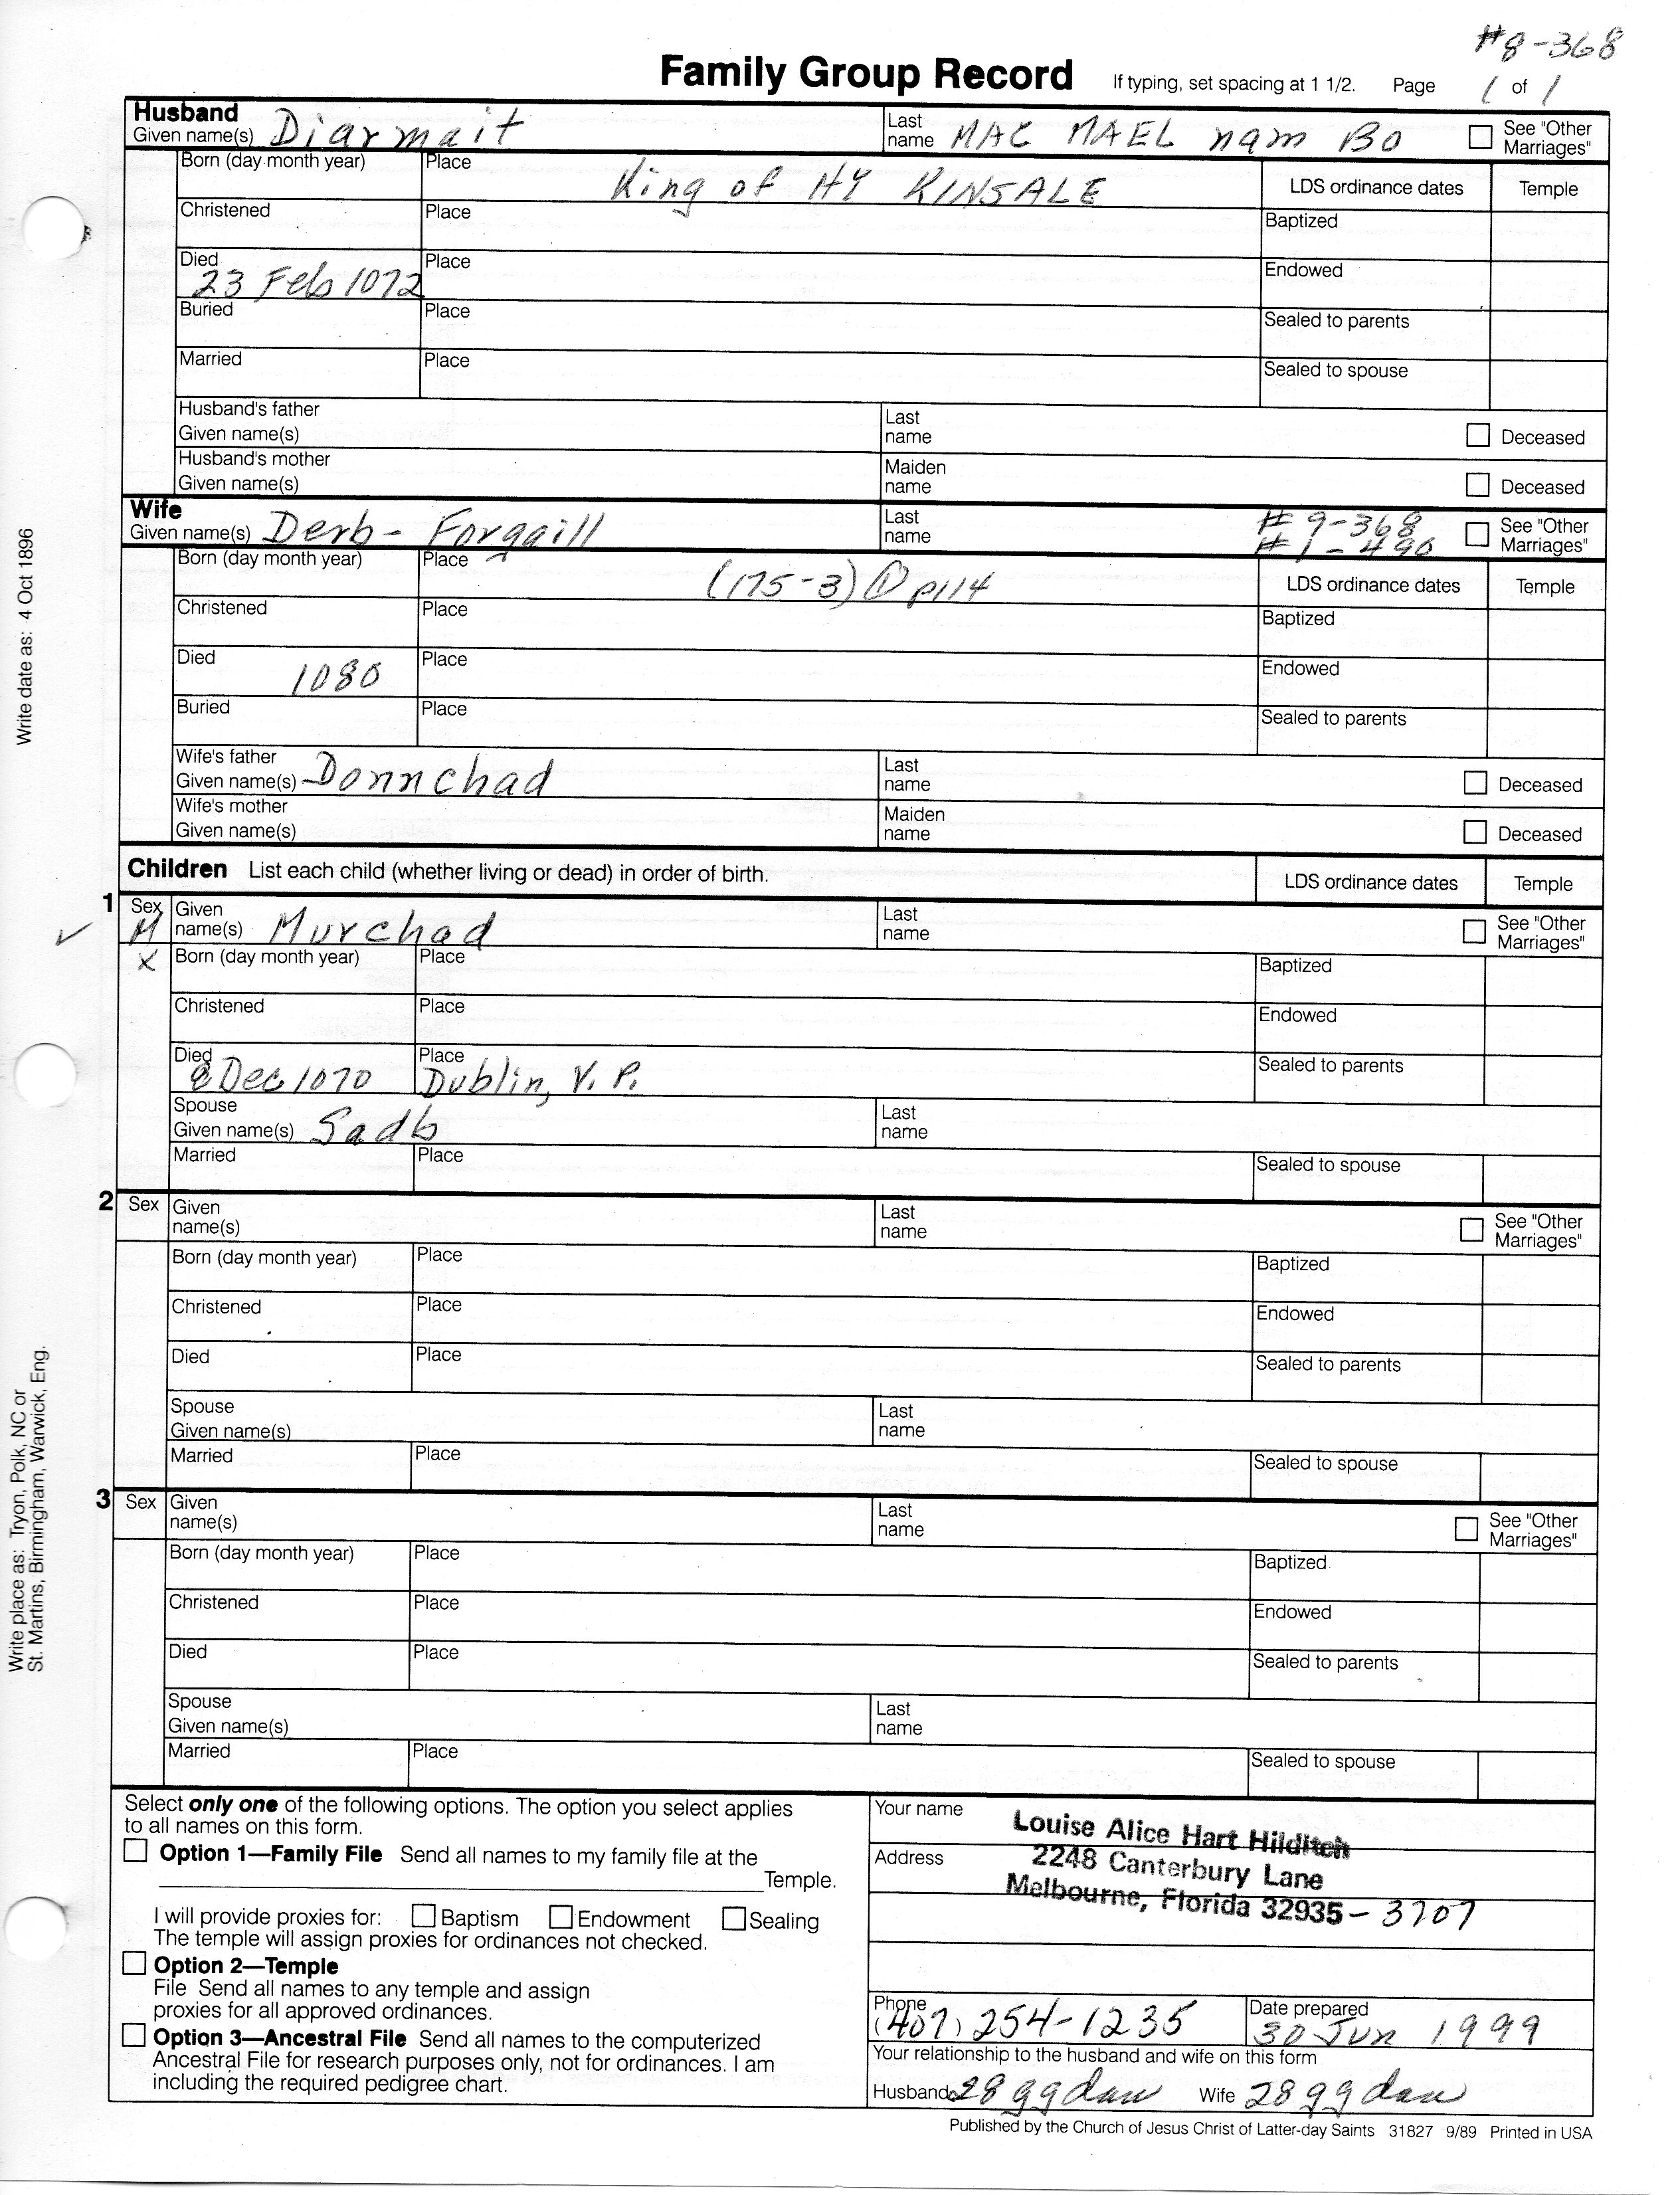 #8-368
Family Group Record If typing, set spacing at 1 1/2. Page 1 of 1
Husband
Given name(s) Diarmait Last name MAC MAEL nam BO See "Other Marriages"
Born (day month year) Place King of HY KINSALE LDS ordinance dates Temple
Christened Place Baptized
Died 23 Feb 1072 Place Endowed
Buried Place Sealed to parents
Married Place Sealed to spouse
Husband's father
Given name(s) Last name Deceased
Husband's mother
Given name(s) Maiden name Deceased
Wife
Given name(s) Derb-Forgaill Last name #9-368 #1-490 See "Other Marriages"
Born (day month year) Place (175-3) ① p114 LDS ordinance dates Temple
Christened Place Baptized
Died 1080 Place Endowed
Buried Place Sealed to parents
Wife's father
Given name(s) Donnchad Last name Deceased
Wife's mother
Given name(s) Maiden name Deceased
Children List each child (whether living or dead) in order of birth. LDS ordinance dates Temple
1 Sex M Given name(s) Murchad Last name See "Other Marriages"
X Born (day month year) Place Baptized
Christened Place Endowed
Died 8 Dec 1070 Place Dublin, V.P. Sealed to parents
Spouse
Given name(s) Sadb Last name
Married Place Sealed to spouse
2 Sex Given name(s) Last name See "Other Marriages"
Born (day month year) Place Baptized
Christened Place Endowed
Died Place Sealed to parents
Spouse
Given name(s) Last name
Married Place Sealed to spouse
3 Sex Given name(s) Last name See "Other Marriages"
Born (day month year) Place Baptized
Christened Place Endowed
Died Place Sealed to parents
Spouse
Given name(s) Last name
Married Place Sealed to spouse
Select only one of the following options. The option you select applies
to all names on this form.
Option 1—Family File Send all names to my family file at the
Temple.
I will provide proxies for: Baptism Endowment Sealing
The temple will assign proxies for ordinances not checked.
Option 2—Temple
File Send all names to any temple and assign
proxies for all approved ordinances.
Option 3—Ancestral File Send all names to the computerized
Ancestral File for research purposes only, not for ordinances. I am
including the required pedigree chart.
Your name Louise Alice Hart Hilditch
Address 2248 Canterbury Lane
Melbourne, Florida 32935-3707
Phone (407) 254-1235 Date prepared 30 Jun 1999
Your relationship to the husband and wife on this form
Husband 28 ggdau Wife 28 ggdau
Published by the Church of Jesus Christ of Latter-day Saints 31827 9/89 Printed in USA
Write date as: 4 Oct 1896
Write place as: Tryon, Polk, NC or
St. Martins, Birmingham, Warwick, Eng.